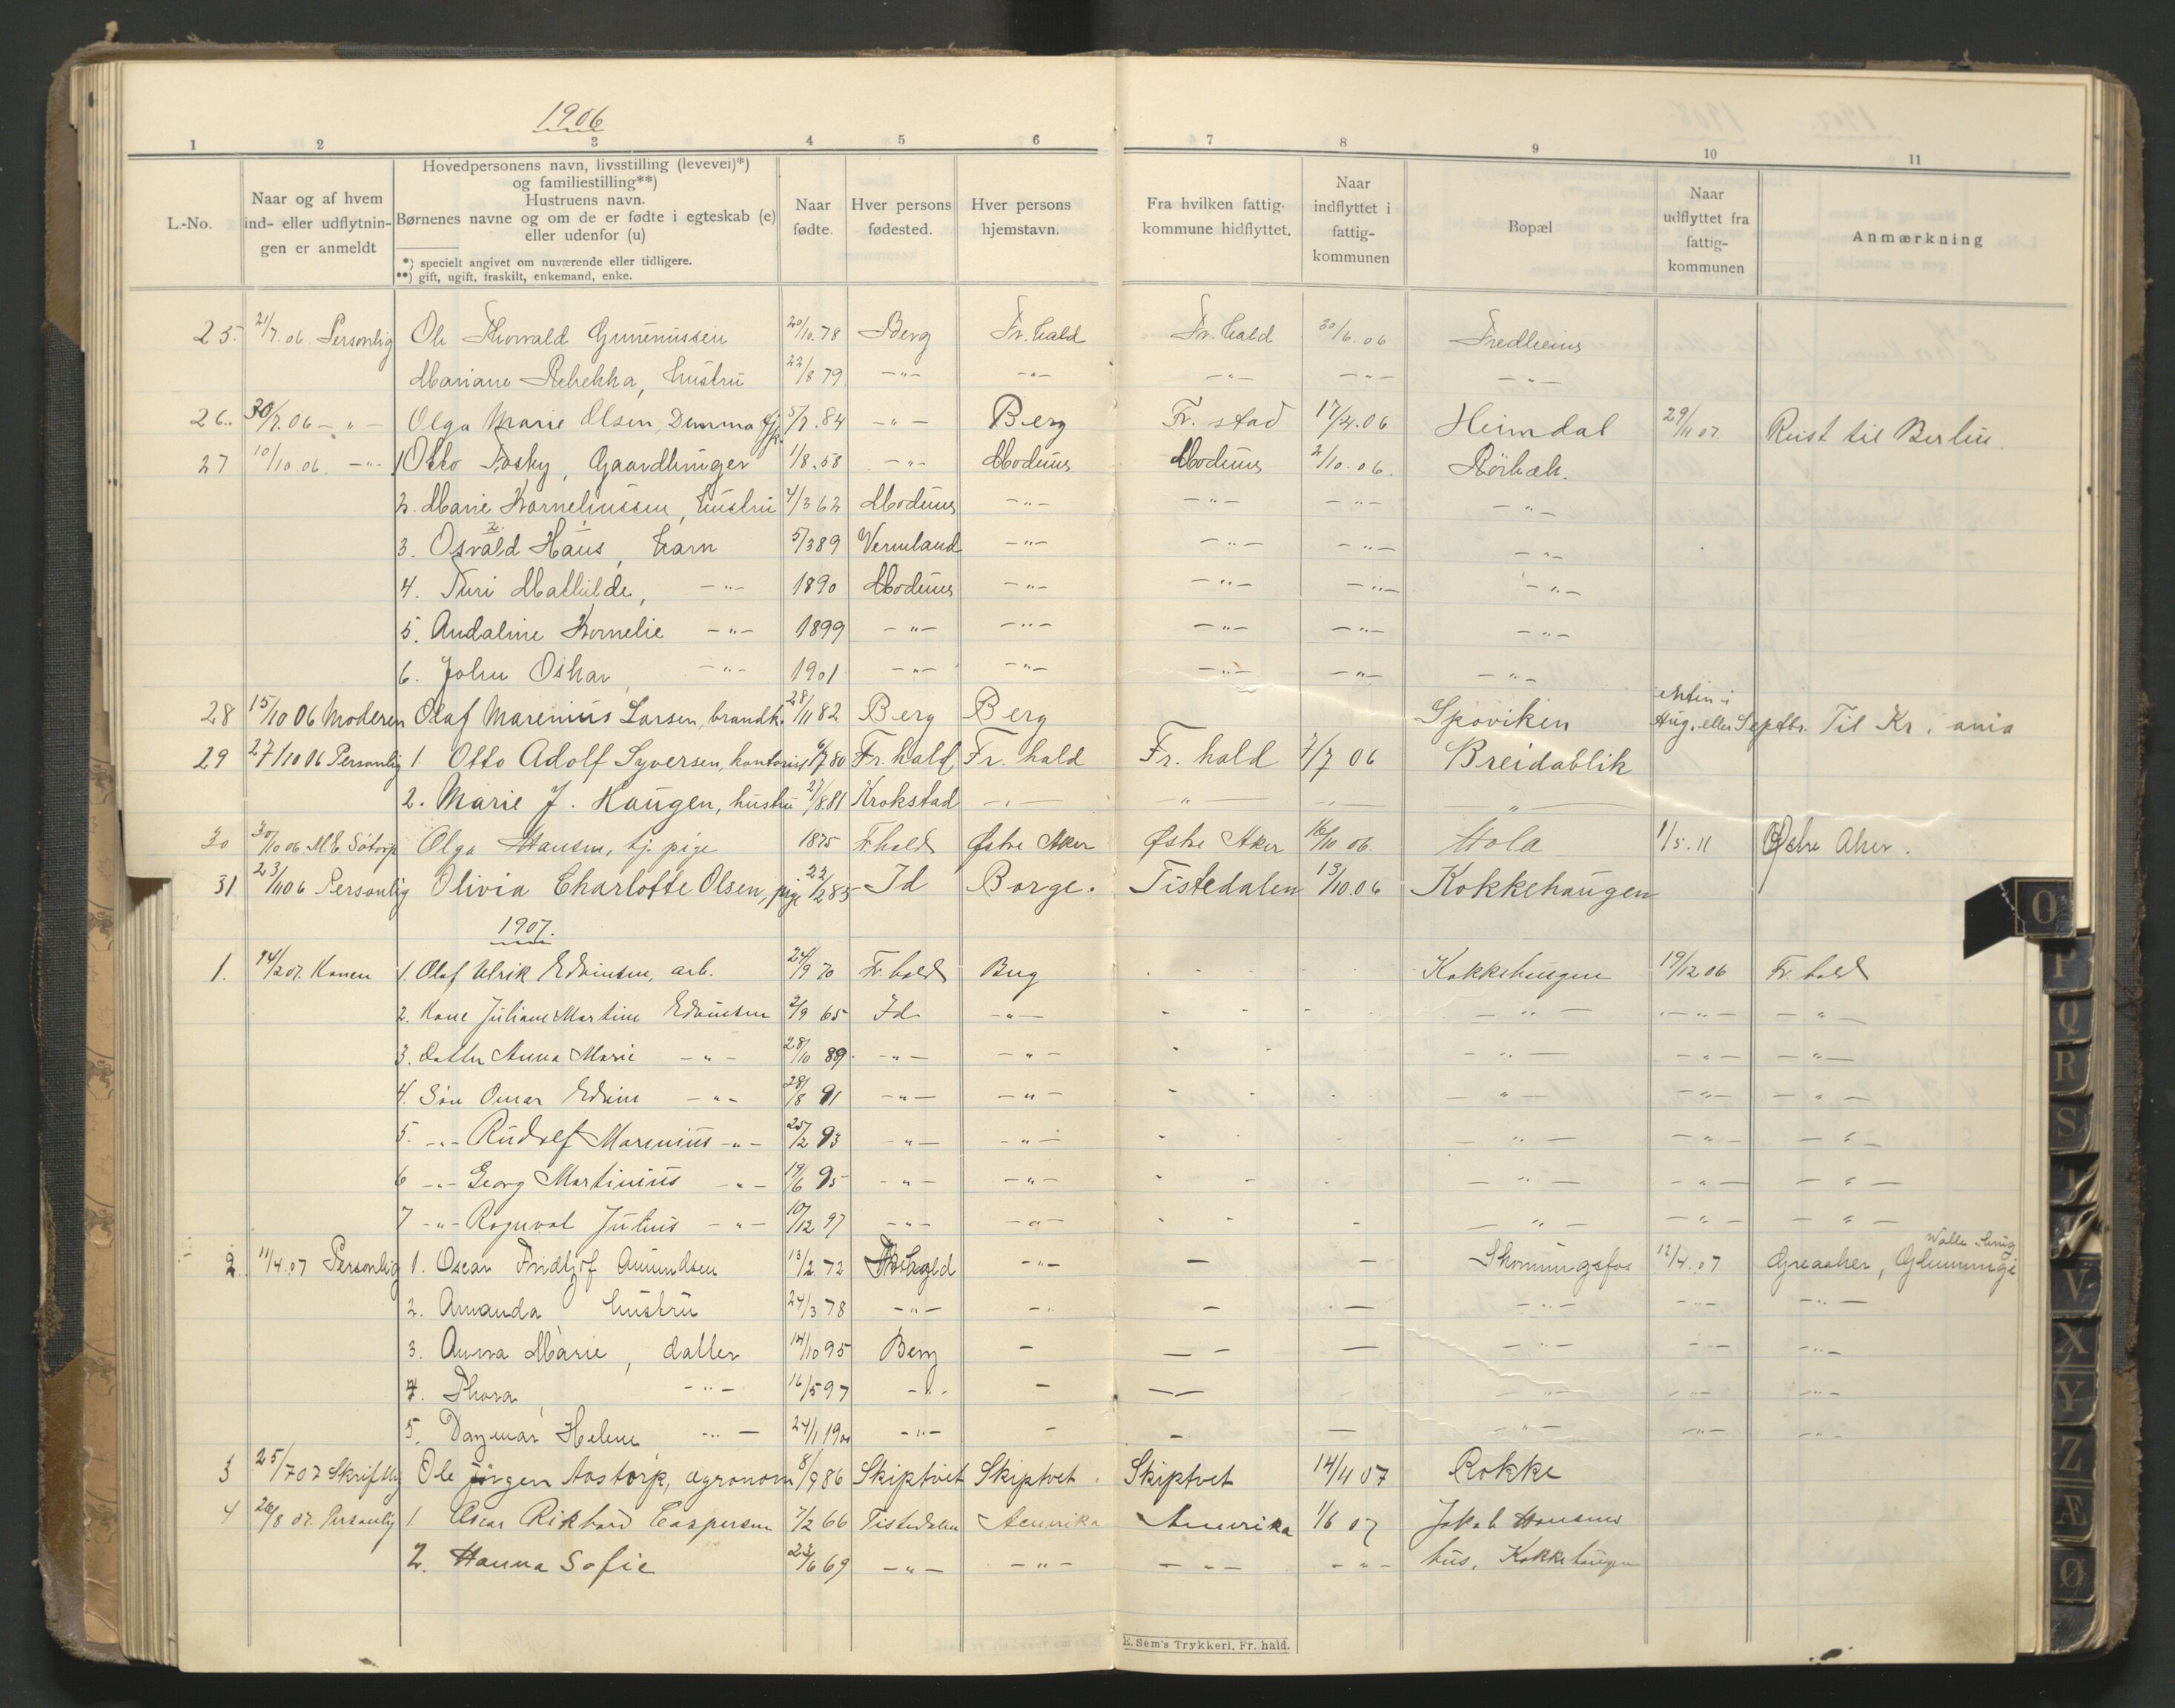 1906
1 2 3 4 5 6 7 8 9 10 11
L.-No.
Naar og af hvem
ind- eller udflytnin-
gen er anmeldt
Hovedpersonens navn, livsstilling (levevei)*)
og familiestilling**)
Hustruens navn.
Børnenes navne og om de er fødte i egteskab (e)
eller udenfor (u)
*) specielt angivet om nuværende eller tidligere.
**) gift, ugift, fraskilt, enkemand, enke.
Naar
fødte.
Hver persons
fødested.
Hver persons
hjemstavn.
Fra hvilken fattig-
kommune hidflyttet.
Naar
indflyttet i
fattig-
kommunen
Bopæl
Naar
udflyttet fra
fattig-
kommunen
Anmærkning
25. 21/7.06. Personlig Ole Thorvald Guneriussen 20/10.78 Berg Fr.hald Fr.hald 30/6.06 Fredheim
Mariane Rebekka, hustru 22/8 79 -"- -"- -"- -"- -"-
26. 30/7.06 -"- Olga Marie Olsen, 5/7.84 -"- Berg Fr. stad 17/4.06 Heimdal 29/11 07. Reist til Berlin.
27 10/10.06. -"- 1 Otto Fosby, Gaardbruger 1/8.58 -"- Modum Modum 2/10.06. Rörbæk.
2. Marie Korneliussen, hustru 4/3 62 Modum -"- -"- -"- -"-
3. Osvald Hans, barn 5/3 89 Vermland -"- -"- -"- -"-
4. Turi Mathilde, -"- 1890 Modum -"- -"- -"- -"-
5. Andaline Kornelie -"- 1899 -"- -"- -"- -"- -"-
6. John Oskar, -"- 1901 -"- -"- -"- -"- -"-
28 15/10 06 Moderen Olaf Marenius Larsen, brandk. 28/11 82 Berg Berg Spoviken Aug. eller Septbr. Til Kr.ania
29 27/10 06 Personlig 1. Otto Adolf Syversen, kontorist 6/7 80 Fr.hald Fr.hald Fr.hald 7/7 06 Breidablik
2. Marie J. Haugen, hustru 27/8 81 Krokstad -"- " -"- -"-
30 30/10 06. M.E. Sötorp Olga Hansen, tj. pige 1875 F.hald Østre Aker Østre Aker 16/10 06. Hola 1/5.11 Østre Aker.
31 23/11 06 Personlig Olivia Charlotte Olsen, pige 22/2 85 Id Borge. Tistedalen 13/10.06 Kokkehaugen
1907.
1. 14/2 07. Konen 1. Olaf Ulrik Edvinsen, arb. 24/9 70 Fr.hald Berg - - - Kokkehaugen 19/12 06 Fr.hald
2. Kone Juliane Martine Edvinsen 2/9 65 Id -"- - - - -"- -"- -"-
3. Datter Anna Marie -"- 28/10 89 -"- -"- - - -"- -"- -"-
4. Sön Omar Edvin -"- 28/8 91 -"- -"- - - -"- -"- -"-
5. -"- Rudolf Marenius -"- 25/2 93 -"- -"- - - -"- -"- -"-
6 -"- Georg Martinius -"- 19/6 95 -"- -"- - - -"- -"- -"-
7 -"- Ragnval Julius -"- 10/12 97 -"- -"- - - -"- -"- -"-
2. 11/4.07 Personlig 1. Oscar Fridtjof Amundsen 13/2 72 Fr.hald -"- - - Skonningsfos 12/4.07 Greaaker, Glemminge
2. Amanda, hustru 24/3 78 -"- -" - - -"- -"- -"-
3. Anna Marie, datter 14/10 95 Berg - - - -"- -"- -"-
4. Thora, -"- 16/5 97 -"- - - -"- -"- -"-
5. Dagmar Helene, -"- 24/1 1900 -"- - - - -"- -"- -"-
3 25/7 07 Skriftlig Ole Jörgen Aastorp, agronom 8/9 86 Skiptvet Skiptvet. Skiptvet 14/4 07 Rokke
4 26/8 07. Personlig 1. Oscar Rikhard Caspersen 7/2 66 Tistedalen Amerika Amerika 1/6 07 Jakob Hansens
2. Hanna Sofie 23/6 69 -"- -"- -"- -"- hus, Kokkehaugen
E. Sem's Trykkeri, Fr. hald.
O
P
Q
R
S
T
V
X
Y
Z
Æ
Ø